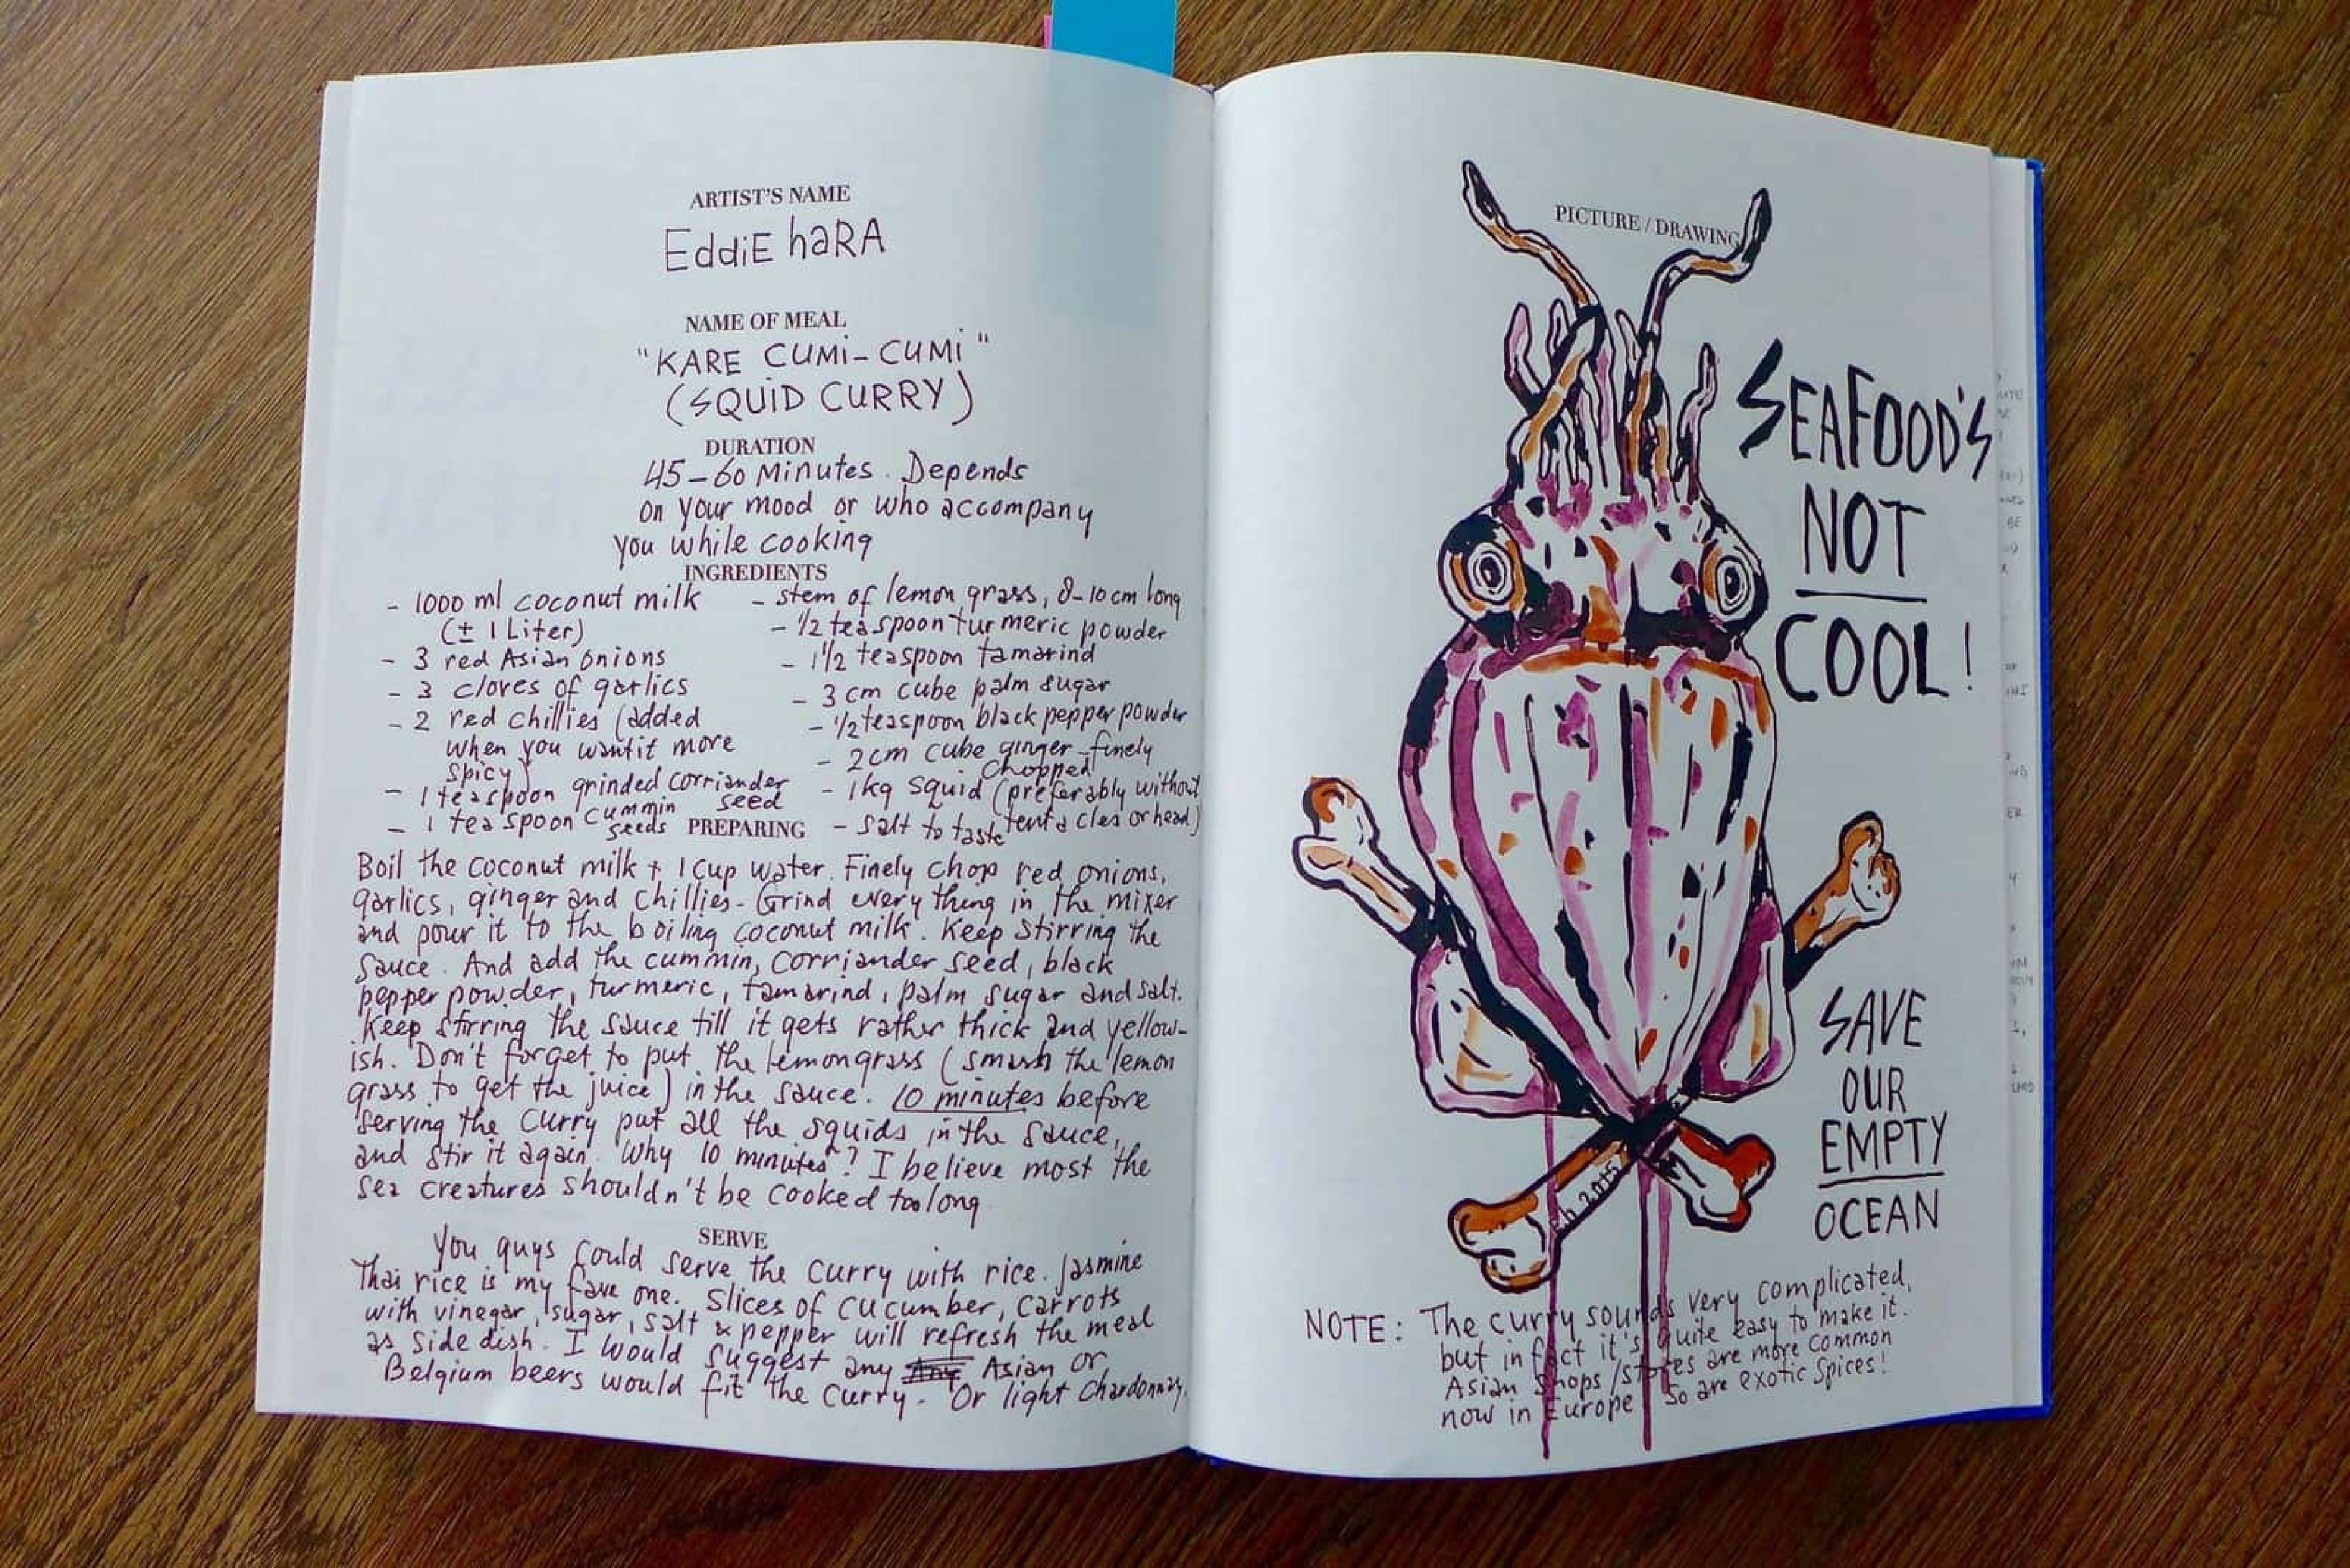 ARTIST'S NAME
EddiE haRA
NAME OF MEAL
"KARE CUMi-CUMi"
(SQUiD CURRY)
DURATION
45-60 Minutes. Depends
on your mood or who accompany
you while cooking
INGREDIENTS
- 1000 ml coconut milk
(± 1 Liter)
- 3 red Asian onions
- 3 cloves of garlics
- 2 red chillies (added
when you want it more
spicy)
- 1 teaspoon grinded corriander
seed
- 1 teaspoon cummin
seeds
- stem of lemon grass, 8-10 cm long
- 1/2 teaspoon turmeric powder
- 1 1/2 teaspoon tamarind
- 3 cm cube palm sugar
- 1/2 teaspoon black pepper powder
- 2 cm cube ginger-finely
chopped
- 1 kg squid (preferably without
tentacles or head)
- salt to taste
PREPARING
Boil the coconut milk + 1 cup water. Finely chop red onions,
garlics, ginger and chillies- Grind every thing in the mixer
and pour it to the boiling coconut milk. Keep stirring the
sauce. And add the cummin, corriander seed, black
pepper powder, turmeric, tamarind, palm sugar and salt.
Keep stirring the sauce till it gets rather thick and yellow-
ish. Don't forget to put the lemongrass (smash the lemon
grass to get the juice) in the sauce. 10 minutes before
serving the curry put all the squids in the sauce,
and stir it again. "Why 10 minutes"? I believe most the
sea creatures shouldn't be cooked too long
SERVE
You guys could serve the curry with rice. Jasmine
Thai rice is my fave one. Slices of cucumber, carrots
with vinegar, sugar, salt & pepper will refresh the meal
as side dish. I would suggest any Asian or
Belgium beers would fit the curry. Or light chardonnay.
PICTURE / DRAWING
SEAFOOD'S
NOT
COOL!
SAVE
OUR
EMPTY
OCEAN
eh 2015
NOTE: The curry sounds very complicated,
but in fact it's quite easy to make it.
Asian shops/stores are more common
now in Europe So are exotic spices!